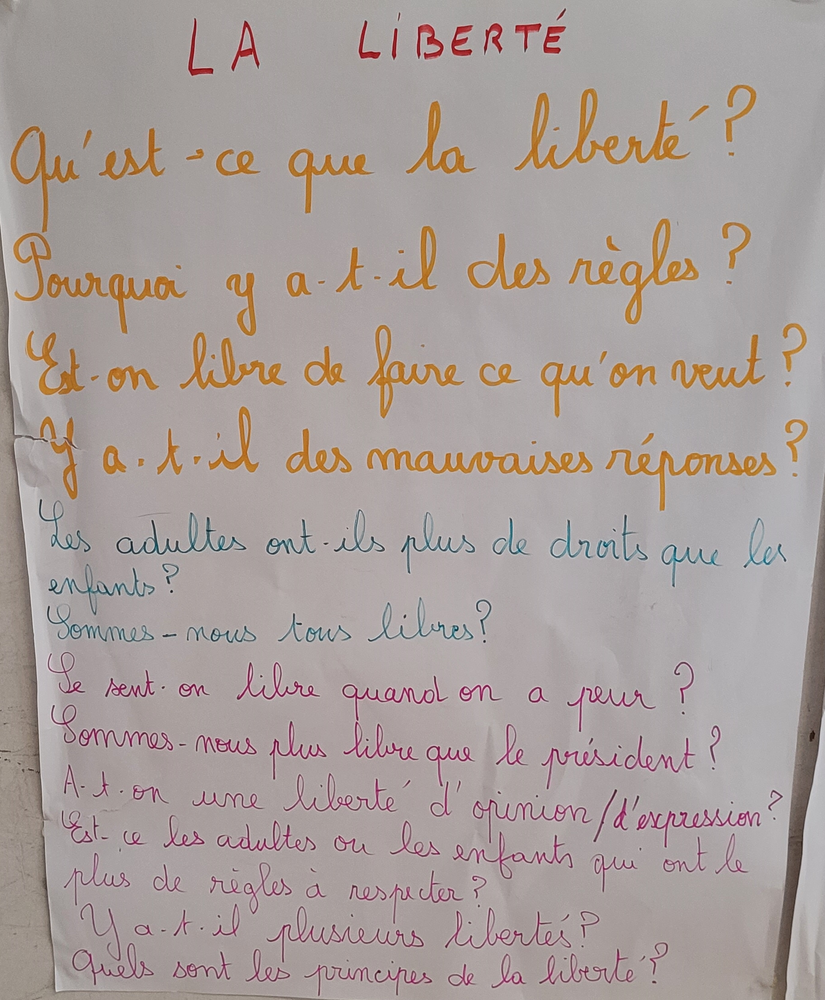 LA LIBERTÉ
Qu'est-ce que la liberté ?
Pourquoi y a-t-il des règles ?
Est-on libre de faire ce qu'on veut ?
Y a-t-il des mauvaises réponses ?
Les adultes ont-ils plus de droits que les
enfants ?
Sommes-nous tous libres ?
Se sent-on libre quand on a peur ?
Sommes-nous plus libre que le président ?
A-t-on une liberté d'opinion/d'expression ?
Est-ce les adultes ou les enfants qui ont le
plus de règles à respecter ?
Y a-t-il plusieurs libertés ?
Quels sont les principes de la liberté ?